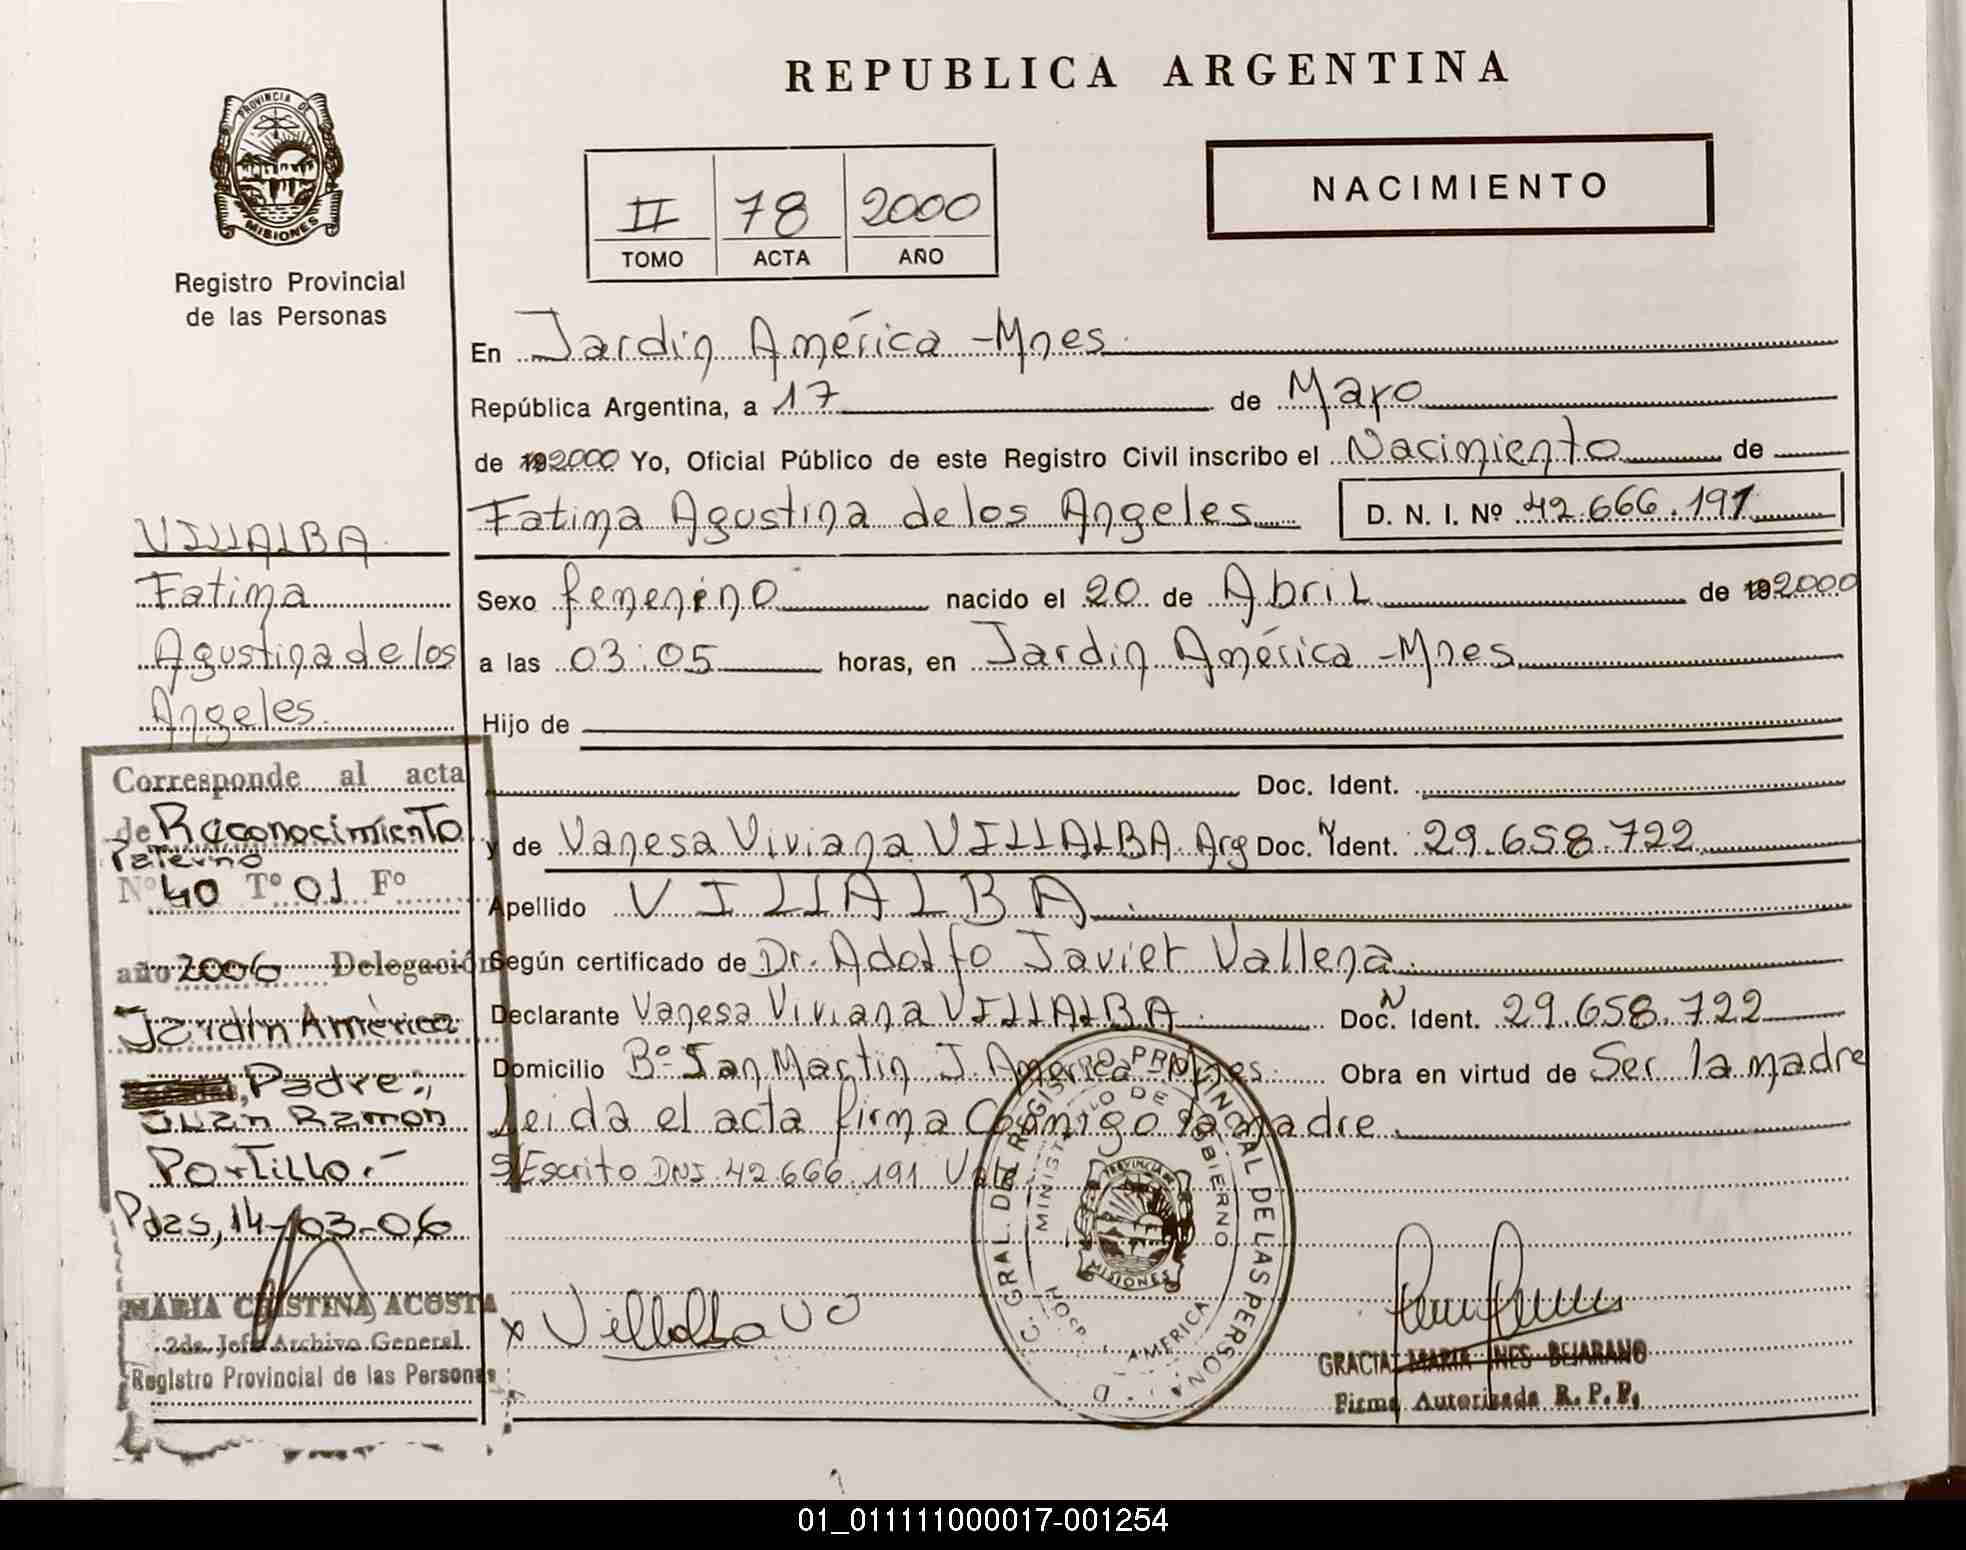 REPUBLICA ARGENTINA
PROVINCIA DE
MISIONES
Registro Provincial
de las Personas
II 78 2000
TOMO ACTA AÑO
NACIMIENTO
En Jardin América -Mnes.
República Argentina, a 17 de Mayo
de 192000 Yo, Oficial Público de este Registro Civil inscribo el Nacimiento de
Fatima Agustina de los Angeles D. N. I. Nº 42.666.191
Sexo femenino nacido el 20 de Abril de 192000
a las 03:05 horas, en Jardin América -Mnes
Hijo de
Doc. Ident.
y de Vanesa Viviana VILLALBA. Arg Doc. Ident. 29.658.722
Apellido VILLALBA.
Según certificado de Dr. Adolfo Javier Vallena.
Declarante Vanesa Viviana VILLALBA. Doc. Ident. 29.658.722
Domicilio Bº San Martin J. America -Mnes. Obra en virtud de Ser la madre
Leida el acta firma Conmigo la madre
S/Escrito DNI. 42.666.191 Vale
VILLALBA.
Fatima
Agustina de los
Angeles.
Corresponde al acta
de Reconocimiento
Paterno
Nº 40 Tº 01 Fº
año 2006 Delegación
Jardín América
Padre:
Juan Ramon
Portillo.-
Pdas, 14-03-06
MARIA CRISTINA ACOSTA
2da. Jefe Archivo General
Registro Provincial de las Personas
x Villalba
GRAL. DEL REGISTRO PROVINCIAL DE LAS PERSONAS
MINISTERIO DE GOBIERNO
PROVINCIA DE
MISIONES
HOSP. AMERICA
GRACIA MARIA INES BEJARANO
Firma Autorizada R. P. P.
01_011111000017-001254